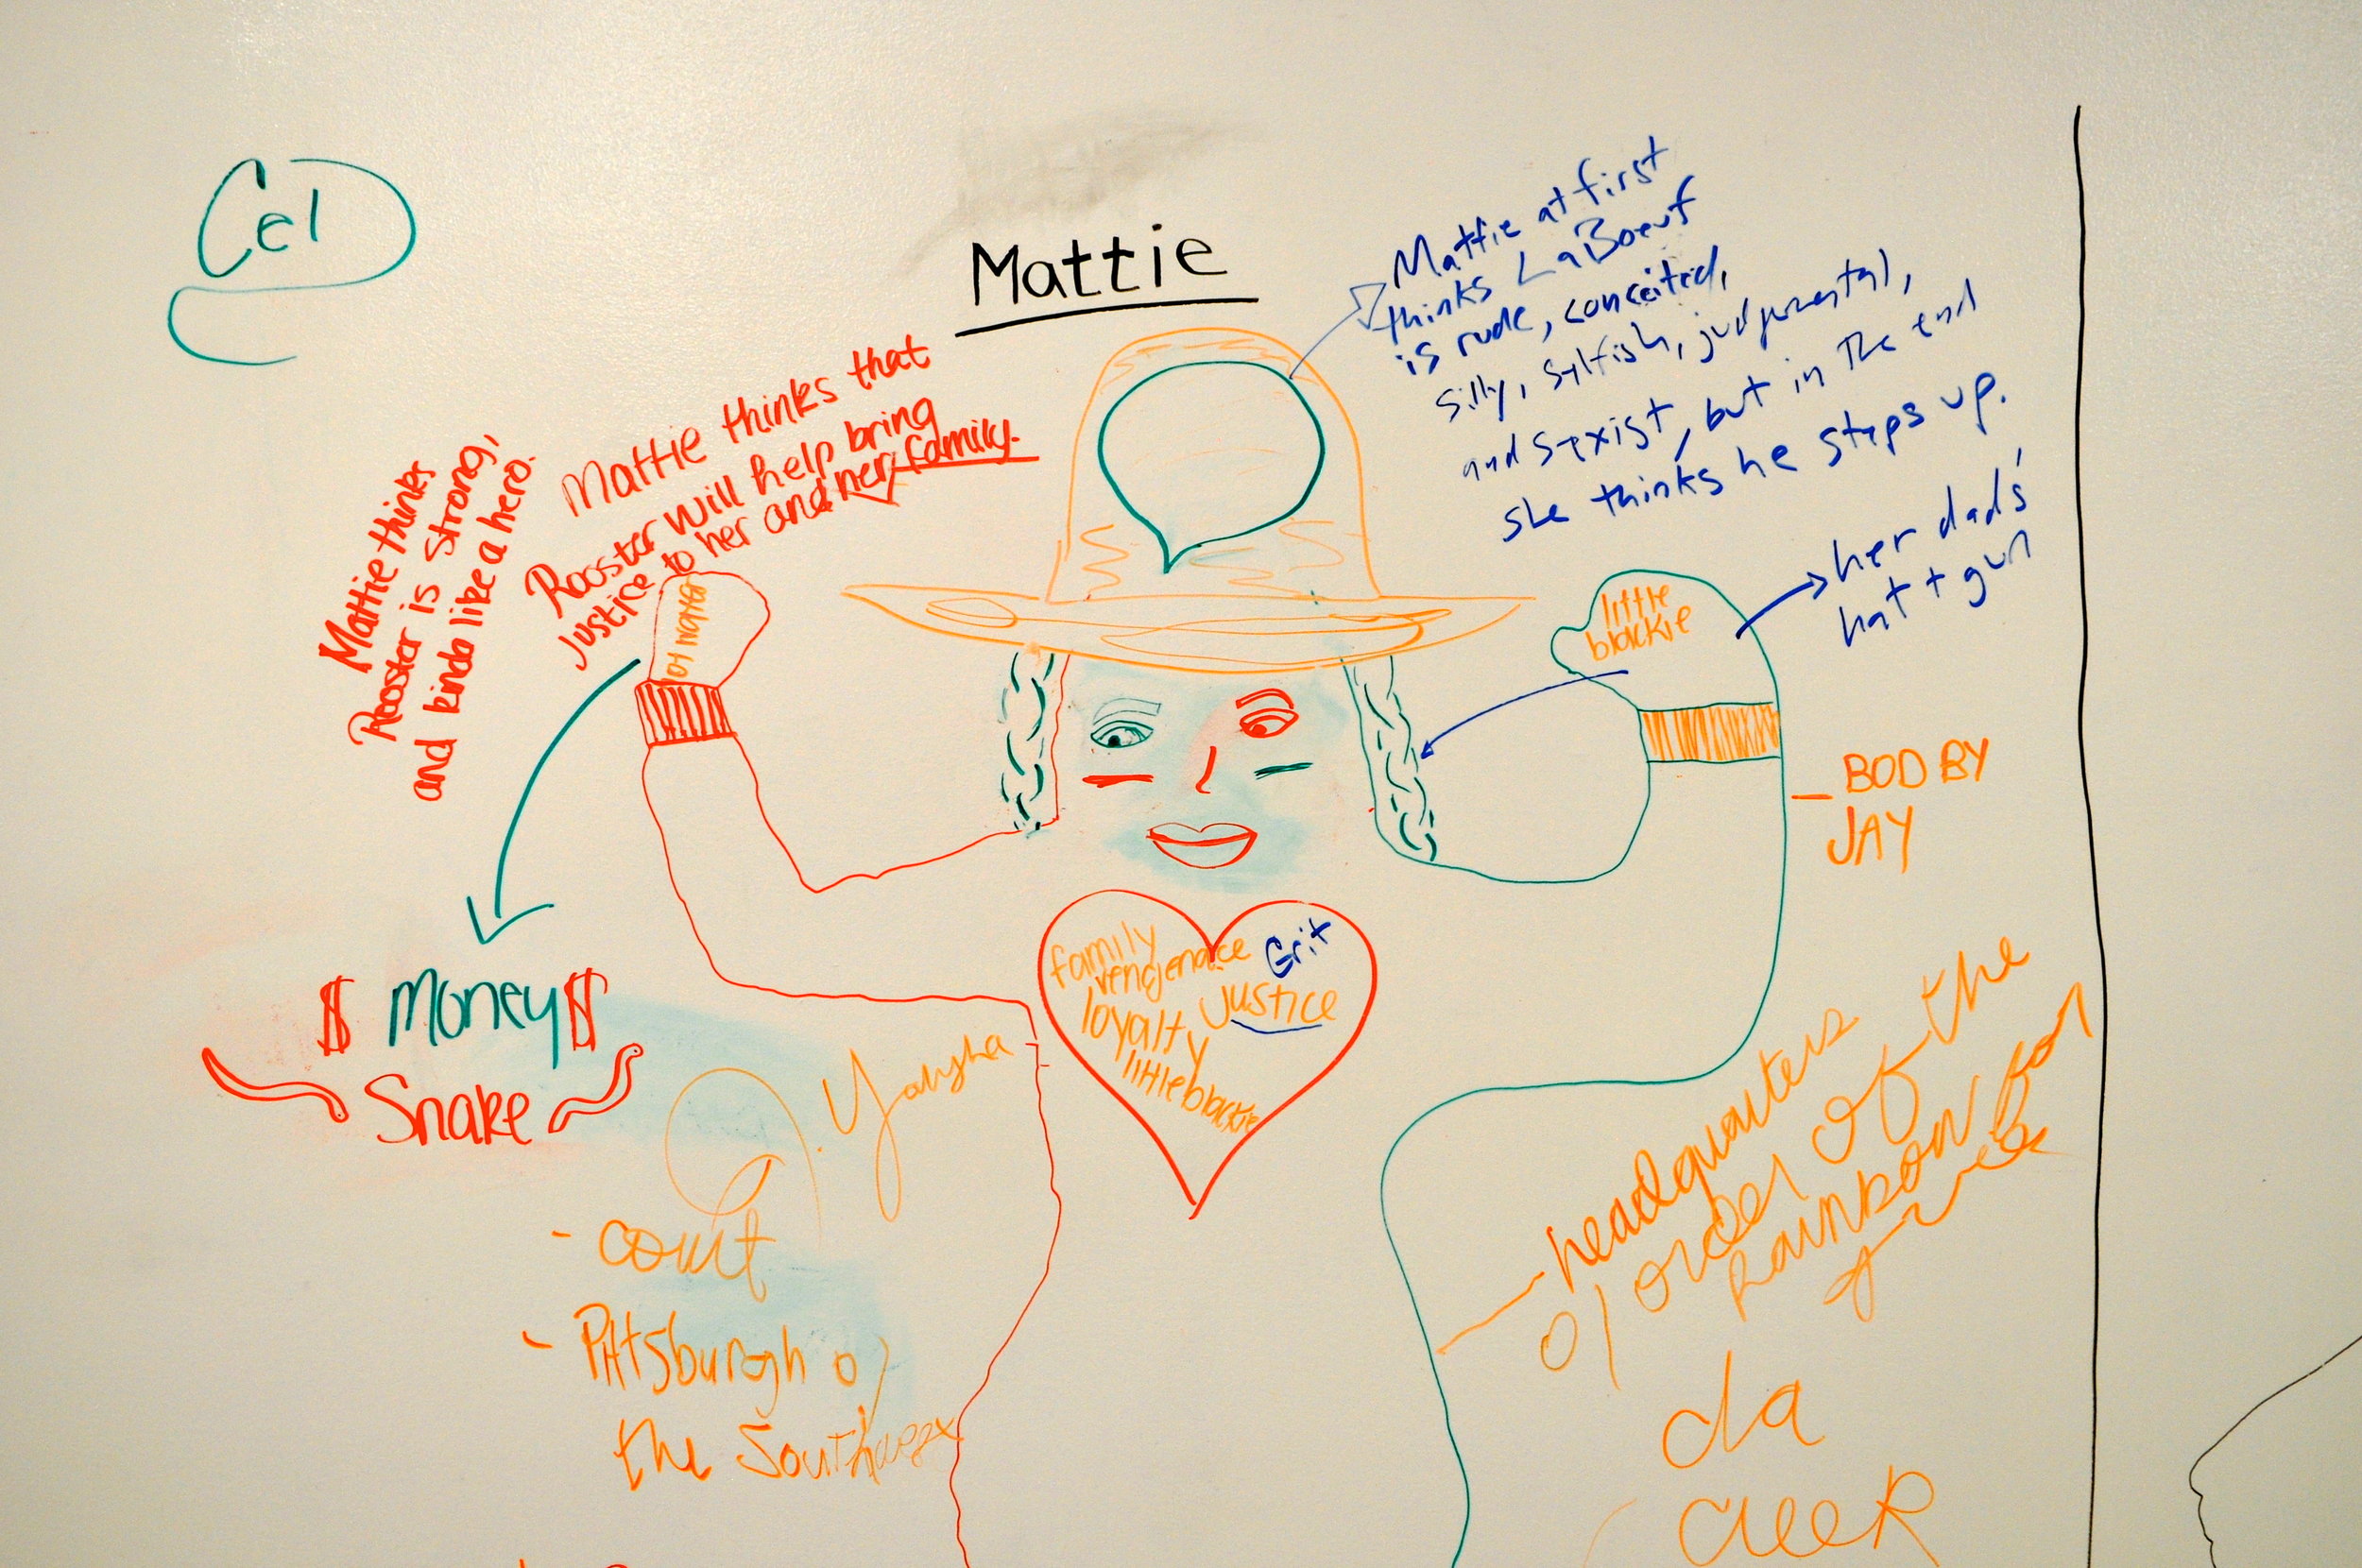 Cel
Mattie
Mattie thinks
Rooster is strong,
and kinda like a hero.
Mattie thinks that
Rooster will help bring
justice to her and her family.
Mattie at first
thinks LaBoeuf
is rude, conceited,
silly, selfish, judgmental,
and sexist, but in the end
she thinks he steps up.
her dad's
hat + gun
little
blackie
BOD BY
JAY
$ Money $
Snake
family
vengenace
Grit
loyalty
Justice
little blackie
- court
- Pittsburgh of
the Southwest
- headquarters
of order of the
Rainbow for
da